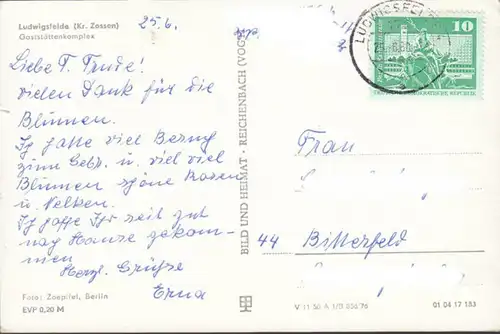 Ludwigsfelde (Kr. Zossen)
Gaststättenkomplex
25.6.
Liebe T. Trude!
vielen Dank für die
Blumen.
Ich hatte viel Besuch
zum Gebt. u. viel viel
Blumen schöne Rosen
u. Nelken.
Ich hoffe Ihr seit gut
nach Hause gekom-
men
Herzl. Grüße
Erna
Foto: Zoepffel, Berlin
EVP 0,20 M
BILD UND HEIMAT · REICHENBACH (VOGTL)
10
DEUTSCHE DEMOKRATISCHE REPUBLIK
Frau
44 Bitterfeld
V 11 50 A 1/B 856/76
01 04 17 183